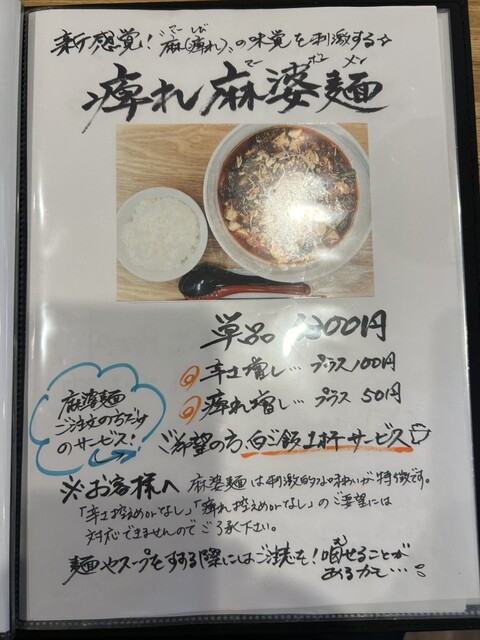 新感覚！"麻(痺れ)"の味覚を刺激する☆
痺れ麻婆麺
単品 1300円
辛さ増し… プラス100円
痺れ増し… プラス 50円
ご希望の方、白ご飯1杯サービス
麻婆麺
ご注文の方だけ
のサービス！
※お客様へ 麻婆麺は刺激的な味わいが特徴です。
「辛さ控えめorなし」「痺れ控えめorなし」のご要望には
対応できませんのでご了承下さい。
麺やスープをすする際にはご注意を！咽せることが
あるかも…